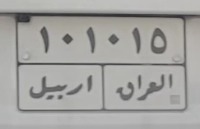 ١٠١٠١٥
العراق اربيل